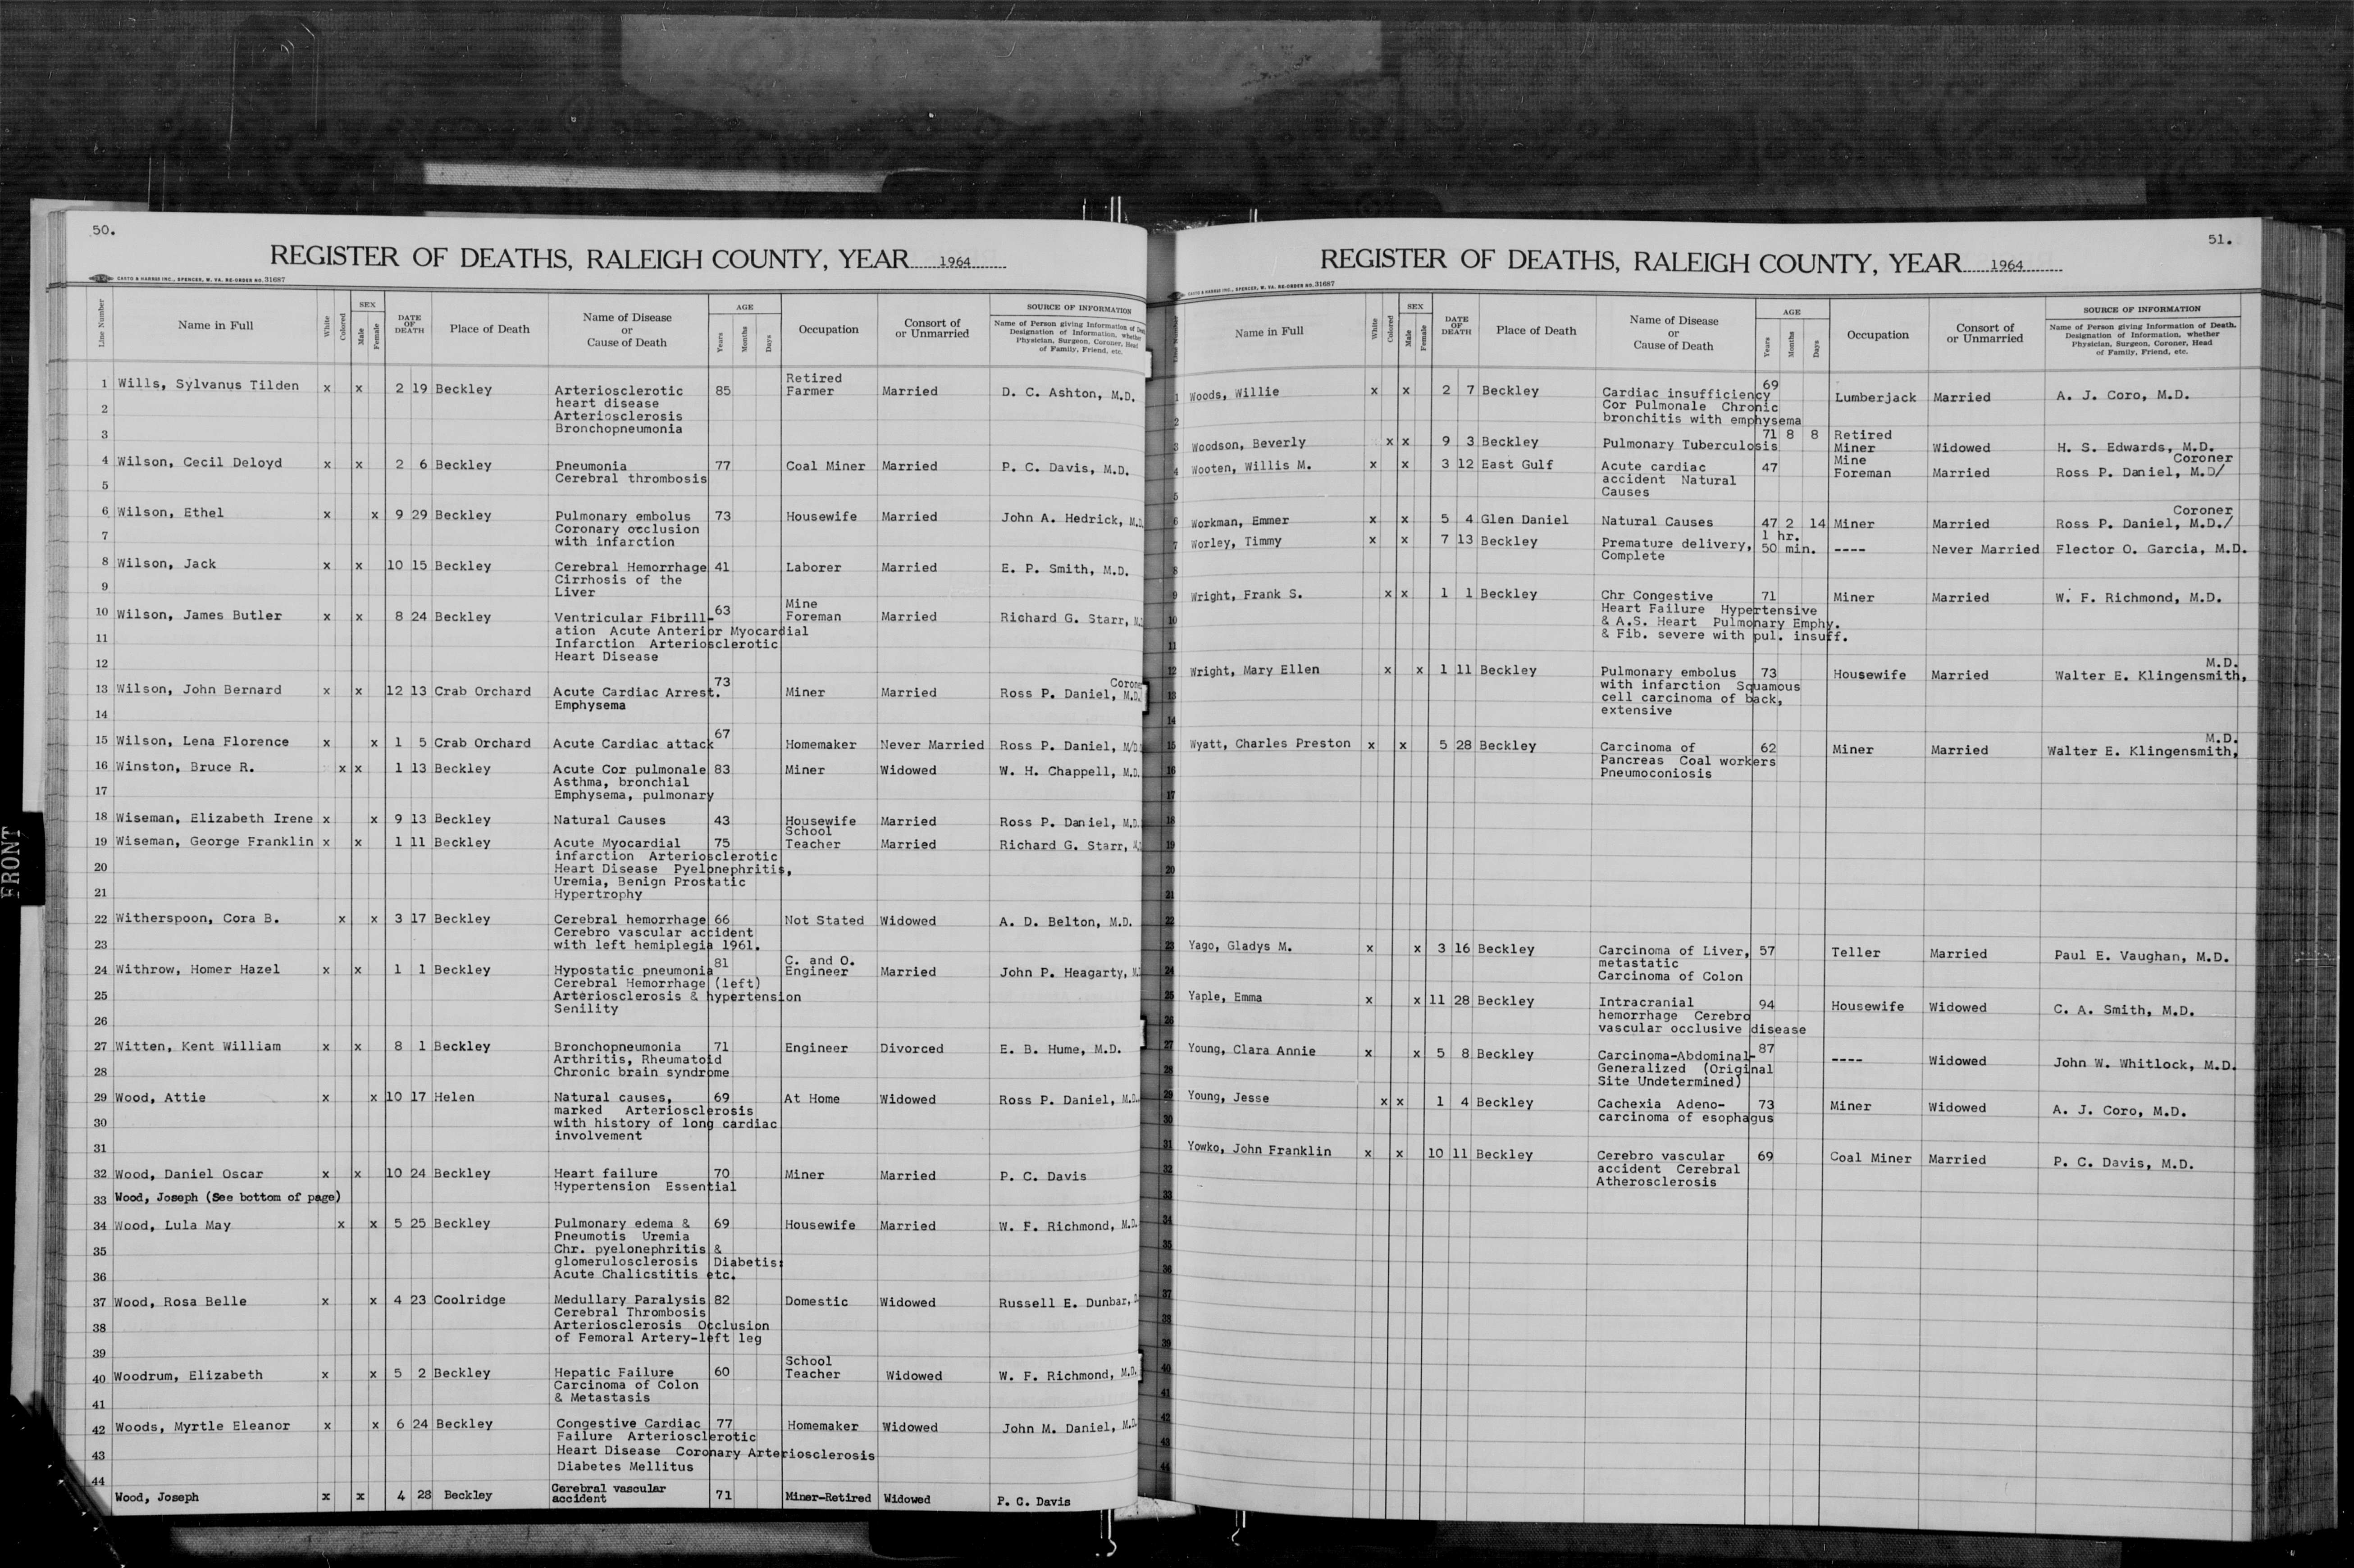 50.
REGISTER OF DEATHS, RALEIGH COUNTY, YEAR 1964
CASTO & HARRIS INC., SPENCER, W. VA. RE-ORDER NO. 31687
Line Number Name in Full White Colored SEX Male Female DATE OF DEATH Place of Death Name of Disease or Cause of Death AGE Years Months Days Occupation Consort of or Unmarried SOURCE OF INFORMATION
Name of Person giving Information of Death, Designation of Information, whether Physician, Surgeon, Coroner, Head of Family, Friend, etc.
1 Wills, Sylvanus Tilden x x 2 19 Beckley Arteriosclerotic 85 Retired Farmer Married D. C. Ashton, M.D.
2 heart disease
Arteriosclerosis
3 Bronchopneumonia
4 Wilson, Cecil Deloyd x x 2 6 Beckley Pneumonia 77 Coal Miner Married P. C. Davis, M.D.
5 Cerebral thrombosis
6 Wilson, Ethel x x 9 29 Beckley Pulmonary embolus 73 Housewife Married John A. Hedrick, M.D.
Coronary occlusion
7 with infarction
8 Wilson, Jack x x 10 15 Beckley Cerebral Hemorrhage 41 Laborer Married E. P. Smith, M.D.
Cirrhosis of the
9 Liver
10 Wilson, James Butler x x 8 24 Beckley Ventricular Fibrill- 63 Mine Foreman Married Richard G. Starr,
11 ation Acute Anterior Myocardial
Infarction Arteriosclerotic
12 Heart Disease
13 Wilson, John Bernard x x 12 13 Crab Orchard Acute Cardiac Arrest. 73 Miner Married Ross P. Daniel, M.D. Coroner
14 Emphysema
15 Wilson, Lena Florence x x 1 5 Crab Orchard Acute Cardiac attack 67 Homemaker Never Married Ross P. Daniel, M/D
16 Winston, Bruce R. x x 1 13 Beckley Acute Cor pulmonale 83 Miner Widowed W. H. Chappell, M.D.
Asthma, bronchial
17 Emphysema, pulmonary
18 Wiseman, Elizabeth Irene x x 9 13 Beckley Natural Causes 43 Housewife Married Ross P. Daniel, M.D.
19 Wiseman, George Franklin x x 1 11 Beckley Acute Myocardial 75 School Teacher Married Richard G. Starr,
infarction Arteriosclerotic
20 Heart Disease Pyelonephritis,
Uremia, Benign Prostatic
21 Hypertrophy
22 Witherspoon, Cora B. x x 3 17 Beckley Cerebral hemorrhage 66 Not Stated Widowed A. D. Belton, M.D.
Cerebro vascular accident
23 with left hemiplegia 1961.
24 Withrow, Homer Hazel x x 1 1 Beckley Hypostatic pneumonia 81 C. and O. Engineer Married John P. Heagarty,
Cerebral Hemorrhage (left)
25 Arteriosclerosis & hypertension
Senility
26
27 Witten, Kent William x x 8 1 Beckley Bronchopneumonia 71 Engineer Divorced E. B. Hume, M.D.
Arthritis, Rheumatoid
28 Chronic brain syndrome
29 Wood, Attie x x 10 17 Helen Natural causes, 69 At Home Widowed Ross P. Daniel, M.D.
marked Arteriosclerosis
30 with history of long cardiac
involvement
31
32 Wood, Daniel Oscar x x 10 24 Beckley Heart failure 70 Miner Married P. C. Davis
Hypertension Essential
33 Wood, Joseph (See bottom of page)
34 Wood, Lula May x x 5 25 Beckley Pulmonary edema & 69 Housewife Married W. F. Richmond, M.D.
Pneumotis Uremia
35 Chr. pyelonephritis &
glomerulosclerosis Diabetis:
36 Acute Chalicstitis etc.
37 Wood, Rosa Belle x x 4 23 Coolridge Medullary Paralysis 82 Domestic Widowed Russell E. Dunbar,
Cerebral Thrombosis
38 Arteriosclerosis Occlusion
of Femoral Artery-left leg
39
40 Woodrum, Elizabeth x x 5 2 Beckley Hepatic Failure 60 School Teacher Widowed W. F. Richmond, M.D.
Carcinoma of Colon
41 & Metastasis
42 Woods, Myrtle Eleanor x x 6 24 Beckley Congestive Cardiac 77 Homemaker Widowed John M. Daniel, M.D.
Failure Arteriosclerotic
43 Heart Disease Coronary Arteriosclerosis
Diabetes Mellitus
44
Wood, Joseph x x 4 28 Beckley Cerebral vascular accident 71 Miner-Retired Widowed P. C. Davis
51.
REGISTER OF DEATHS, RALEIGH COUNTY, YEAR 1964
CASTO & HARRIS INC., SPENCER, W. VA. RE-ORDER NO. 31687
Line Number Name in Full White Colored SEX Male Female DATE OF DEATH Place of Death Name of Disease or Cause of Death AGE Years Months Days Occupation Consort of or Unmarried SOURCE OF INFORMATION
Name of Person giving Information of Death, Designation of Information, whether Physician, Surgeon, Coroner, Head of Family, Friend, etc.
1 Woods, Willie x x 2 7 Beckley Cardiac insufficiency 69 Lumberjack Married A. J. Coro, M.D.
Cor Pulmonale Chronic
2 bronchitis with emphysema
3 Woodson, Beverly x x 9 3 Beckley Pulmonary Tuberculosis 71 8 8 Retired Miner Widowed H. S. Edwards, M.D.
4 Wooten, Willis M. x x 3 12 East Gulf Acute cardiac 47 Mine Foreman Married Ross P. Daniel, M.D/ Coroner
accident Natural
5 Causes
6 Workman, Emmer x x 5 4 Glen Daniel Natural Causes 47 2 14 Miner Married Ross P. Daniel, M.D./ Coroner
7 Worley, Timmy x x 7 13 Beckley Premature delivery, 1 hr. 50 min. ---- Never Married Flector O. Garcia, M.D.
Complete
8
9 Wright, Frank S. x x 1 1 Beckley Chr Congestive 71 Miner Married W. F. Richmond, M.D.
Heart Failure Hypertensive
10 & A.S. Heart Pulmonary Emphy.
& Fib. severe with pul. insuff.
11
12 Wright, Mary Ellen x x 1 11 Beckley Pulmonary embolus 73 Housewife Married Walter E. Klingensmith, M.D.
with infarction Squamous
13 cell carcinoma of back,
extensive
14
15 Wyatt, Charles Preston x x 5 28 Beckley Carcinoma of 62 Miner Married Walter E. Klingensmith, M.D.
Pancreas Coal workers
16 Pneumoconiosis
17
18
19
20
21
22
23 Yago, Gladys M. x x 3 16 Beckley Carcinoma of Liver, 57 Teller Married Paul E. Vaughan, M.D.
metastatic
24 Carcinoma of Colon
25 Yaple, Emma x x 11 28 Beckley Intracranial 94 Housewife Widowed C. A. Smith, M.D.
hemorrhage Cerebro
26 vascular occlusive disease
27 Young, Clara Annie x x 5 8 Beckley Carcinoma-Abdominal- 87 ---- Widowed John W. Whitlock, M.D.
28 Generalized (Original
Site Undetermined)
29 Young, Jesse x x 1 4 Beckley Cachexia Adeno- 73 Miner Widowed A. J. Coro, M.D.
30 carcinoma of esophagus
31 Yowko, John Franklin x x 10 11 Beckley Cerebro vascular 69 Coal Miner Married P. C. Davis, M.D.
32 accident Cerebral
Atherosclerosis
33
34
35
36
37
38
39
40
41
42
43
44
FRONT